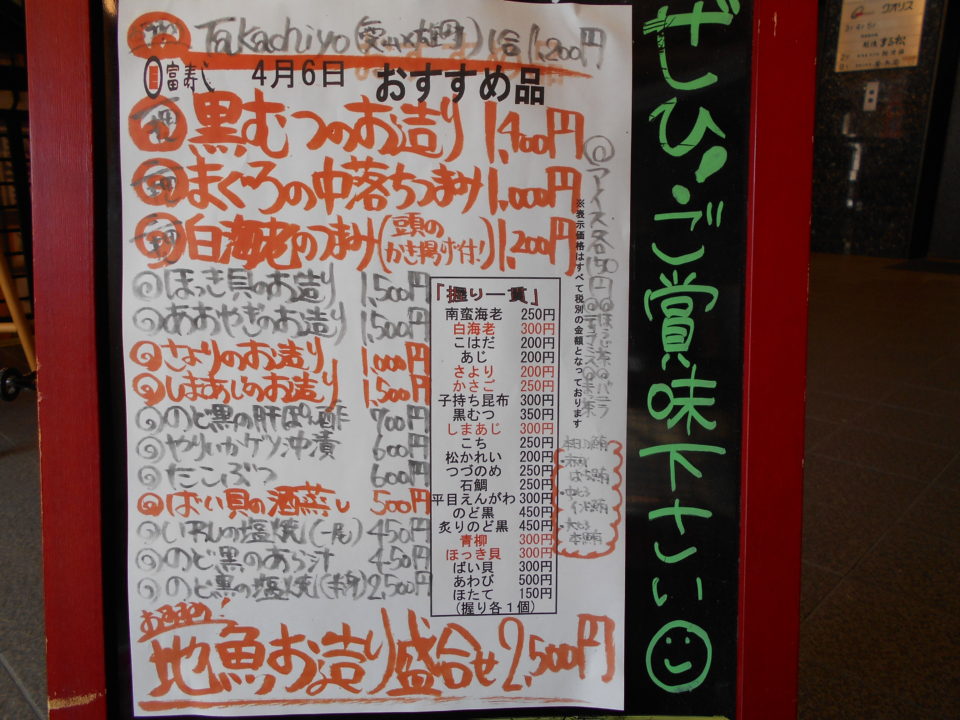 Takachiyo 1合 1,200円
富寿し 4月6日 おすすめ品
黒むつのお造り 1,400円
まぐろの中落ちつまみ 1,000円
白海老のつまみ(頭のかき揚げ付!) 1,200円
ほっき貝のお造り 1,500円
あおやぎのお造り 1,500円
さよりのお造り 1,000円
しまあじのお造り 1,500円
のど黒の肝ぽん酢 700円
やりいかゲソ沖漬 600円
たこぶつ 600円
ばい貝の酒蒸し 500円
のど黒のあら汁 450円
のど黒の塩焼(半身) 2,500円
おすすめ!
地魚お造り盛合せ 2,500円
「握り一貫」
南蛮海老 250円
白海老 300円
こはだ 200円
あじ 200円
さより 200円
かさご 250円
子持ち昆布 300円
黒むつ 350円
しまあじ 300円
こち 250円
松かれい 200円
つづのめ 250円
石鯛 250円
平目えんがわ 300円
のど黒 450円
炙りのど黒 450円
青柳 300円
ほっき貝 300円
ばい貝 300円
あわび 500円
ほたて 150円
(握り各1個)
※表示価格はすべて税別の金額となっております
ぜひ!ご賞味下さい